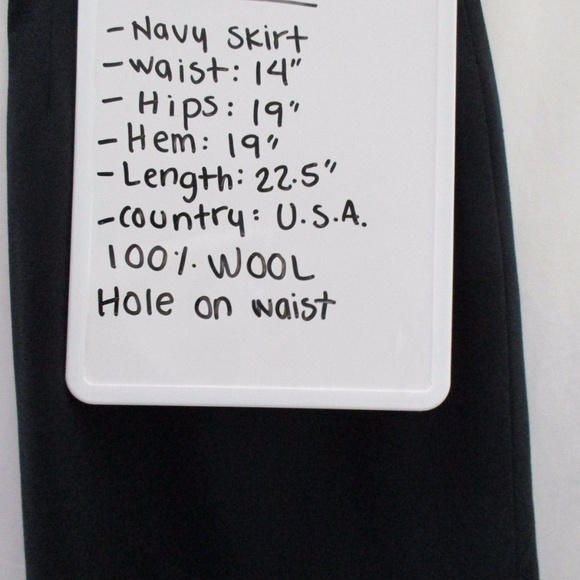 -Navy skirt
-waist: 14"
- Hips: 19"
-Hem: 19"
-Length: 22.5"
-country: U.S.A.
100% WOOL
Hole on waist